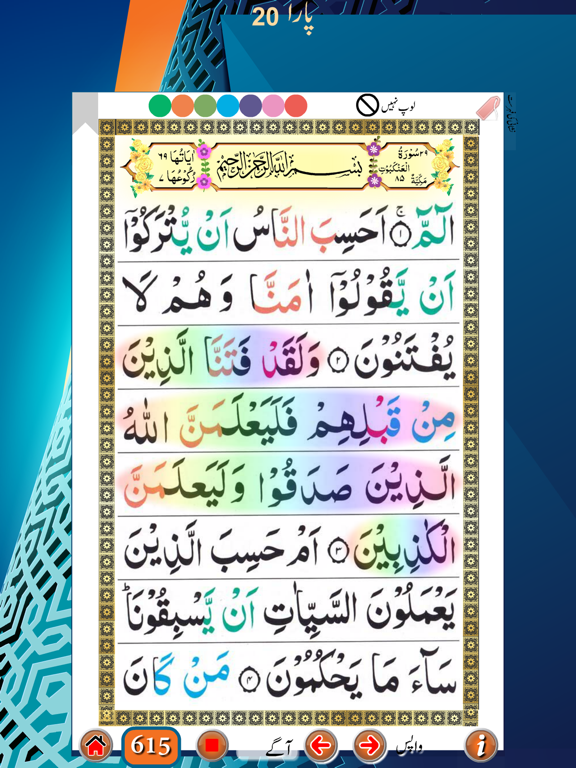 پارا 20
لوپ نہیں
سُوْرَةُ ٢٩
الْعَنْكَبُوْتِ
مَكِّيَّةٌ ٨٥
بِسْمِ اللّٰهِ الرَّحْمٰنِ الرَّحِيْمِ
اٰيَاتُهَا ٦٩
رُكُوْعُهَا ٧
الٓمّٓ ۚ﴿١﴾ اَحَسِبَ النَّاسُ اَنْ يُّتْرَكُوْۤا
اَنْ يَّقُوْلُوْۤا اٰمَنَّا وَ هُمْ لَا
يُفْتَنُوْنَ ﴿٢﴾ وَلَقَدْ فَتَنَّا الَّذِيْنَ
مِنْ قَبْلِهِمْ فَلَيَعْلَمَنَّ اللّٰهُ
الَّذِيْنَ صَدَقُوْا وَلَيَعْلَمَنَّ
الْكٰذِبِيْنَ ﴿٣﴾ اَمْ حَسِبَ الَّذِيْنَ
يَعْمَلُوْنَ السَّيِّاٰتِ اَنْ يَّسْبِقُوْنَا ؕ
سَآءَ مَا يَحْكُمُوْنَ ﴿٤﴾ مَنْ كَانَ
615
آگے
واپس
i